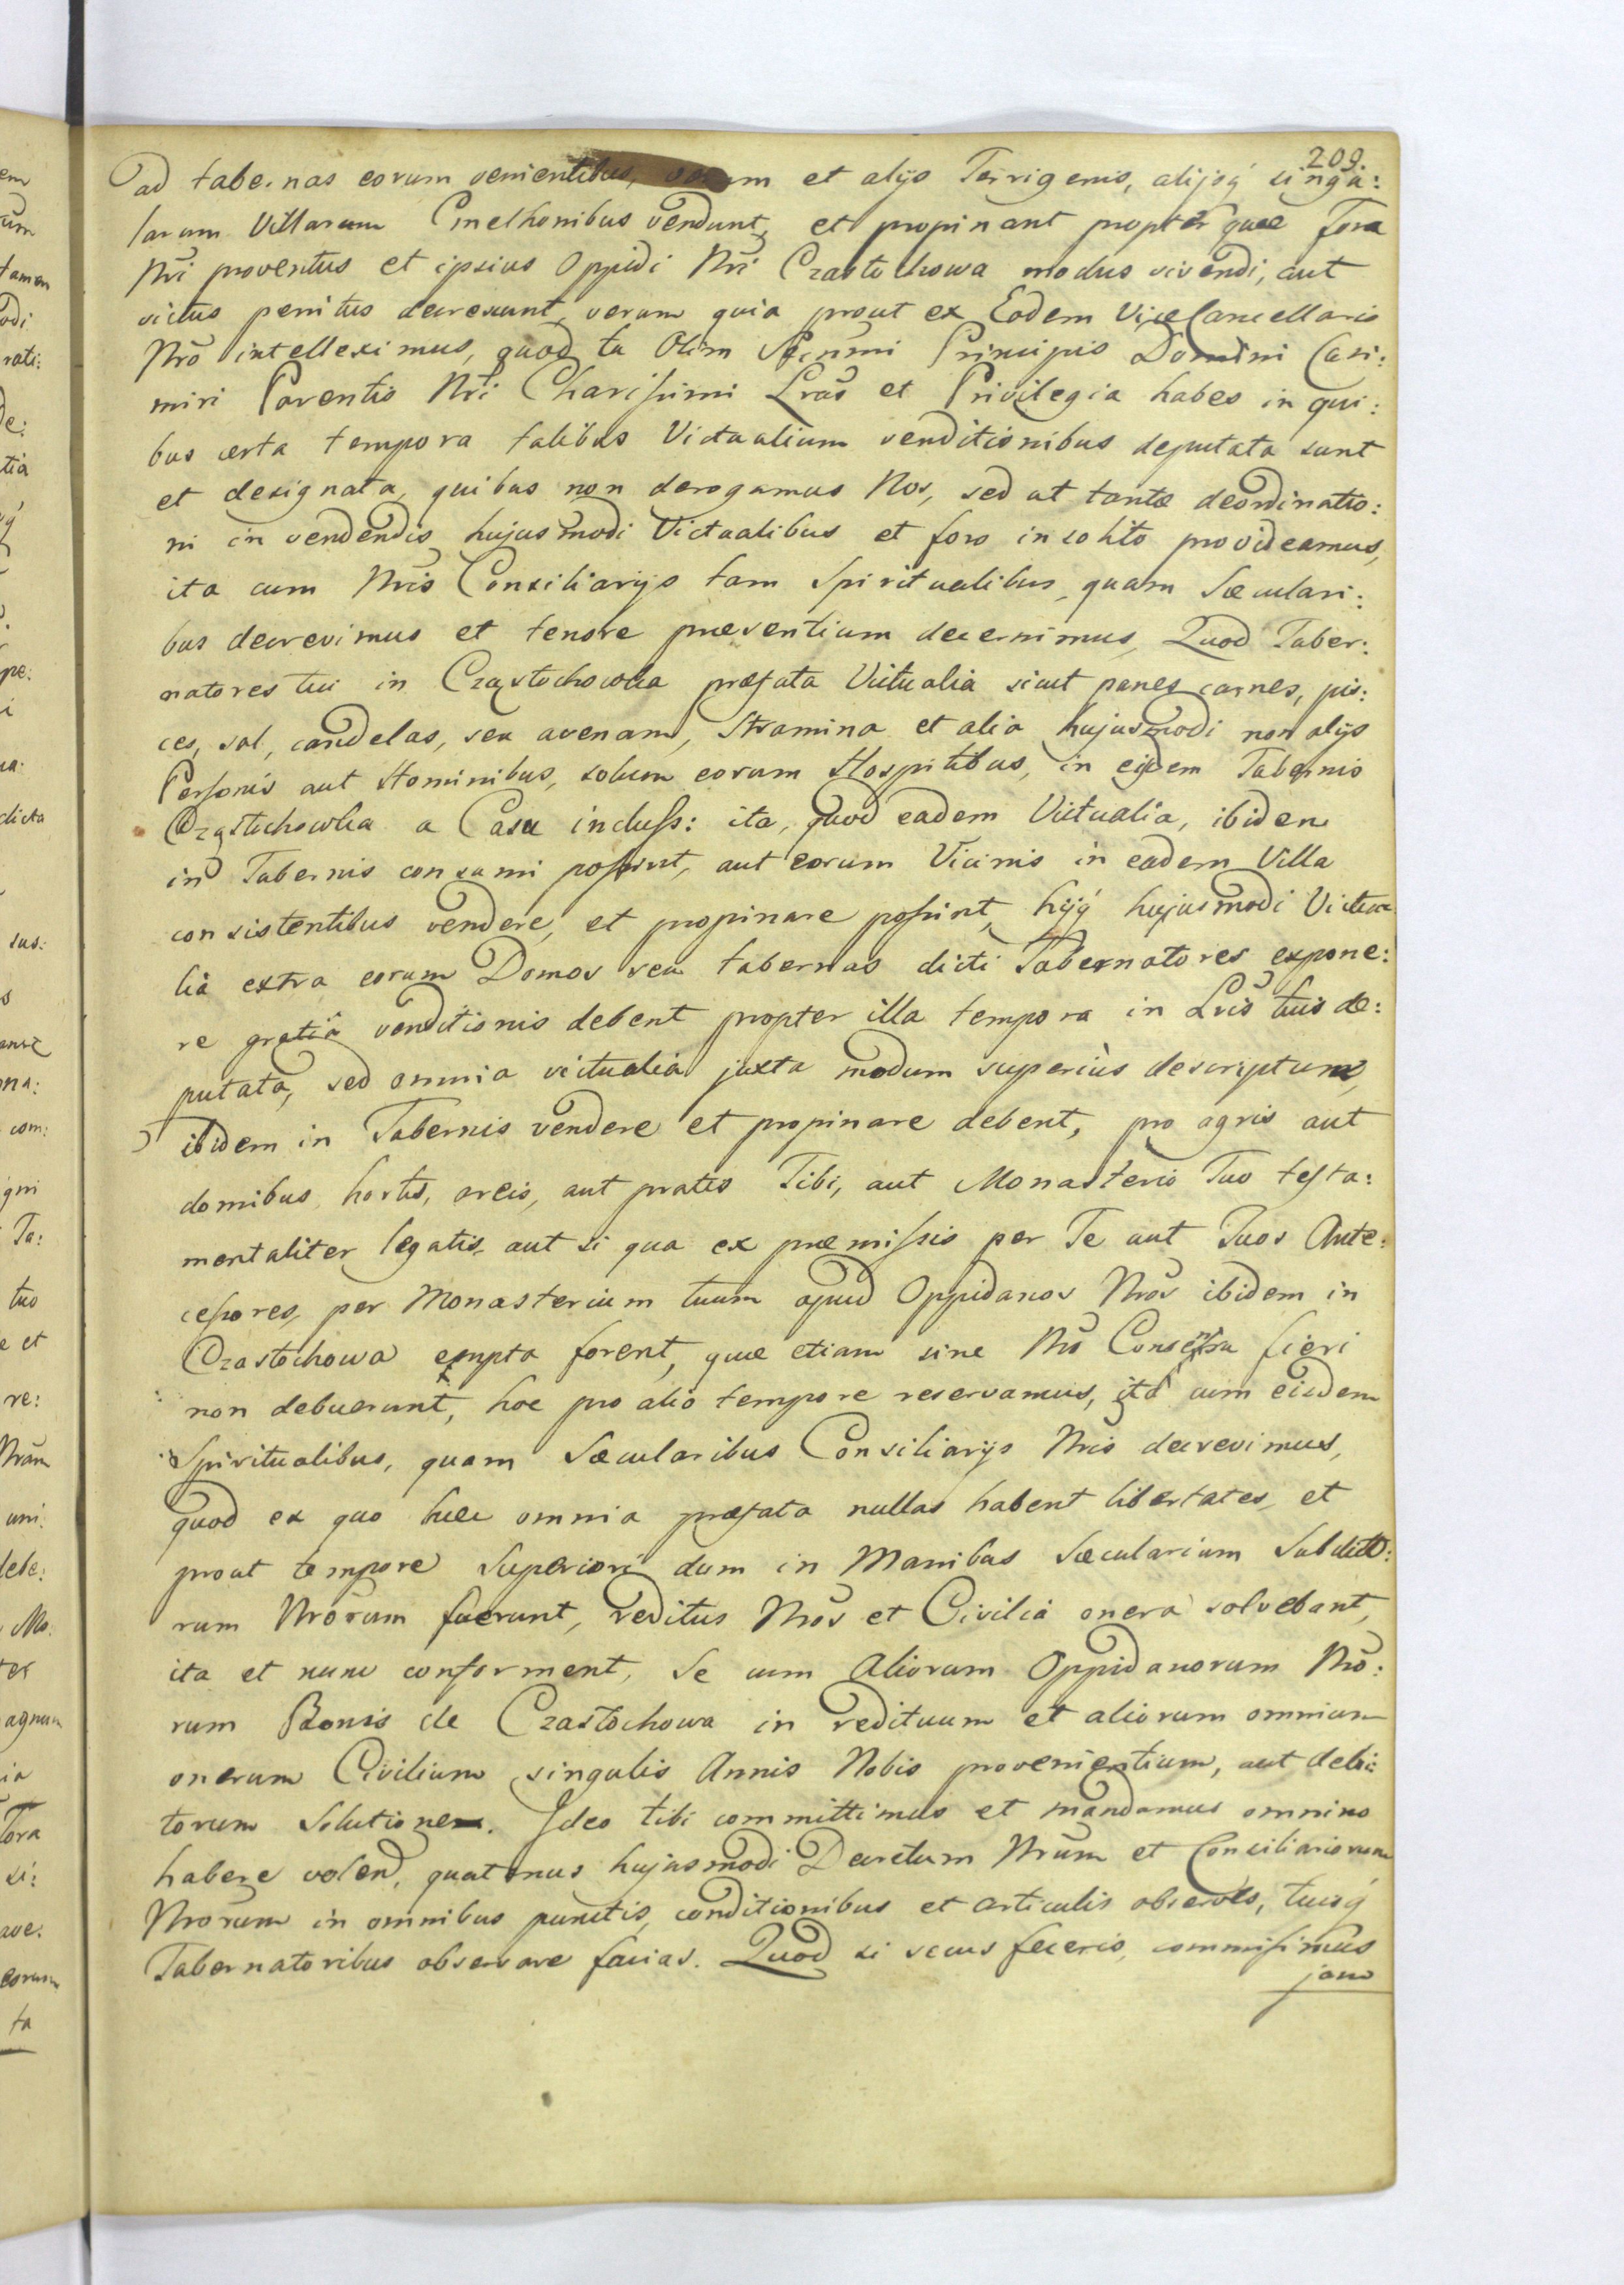 209.
ad tabernas eorum venientibus, verum et alijs Terrigenis, alijsq́ singu:
larum Villarum Cmethonibus vendunt, et propinant propter quae fora
Nri proventus et ipsius Oppidi Nri Czastochowa modus vivendi, aut
victus penitus decrescunt, verum quia prout ex Eodem ViceCancellario
Nrõ intelleximus, quod tu Olim Serñmi Principis Domini Casi:
miri Parentis Nri Charissimi Lrãs et Privilegia habes in qui:
bus certa tempora talibus Victualium venditionibus deputata sunt
et designata, quibus non derogamus Nos, sed ut tantæ deordinatio:
ni in vendendis hujusmodi Victualibus et foro insolito provideamus,
ita cum Nris Consiliarijs tam Spiritualibus, quam Sæculari:
bus decrevimus et tenore præsentium decernimus, Quod Taber:
natores tui in Częstochowka præfata Victualia sicut panes carnes, pis:
ces, sal, candelas, seu avenam, Stramina et alia hujusmodi non alijs
Personis aut Hominibus, solum eorum Hospitibus, in eisdem Tabernis
Częstochowka a Casu inclusis: ita, quod eadem Victualia, ibidem
in Tabernis consumi possint, aut eorum Vicinis in eadem Villa
consistentibus vendere, et propinare possint, hijq́ hujusmodi Victua
lia extra eorum Domos seu tabernas dicti Tabernatores expone:
re gratiâ venditionis debent propter illa tempora in Lris tuis de:
putata, sed omnia victualia juxta modum superiùs descriptum,
ibidem in Tabernis vendere et propinare debent, pro agris aut
domibus, hortis, areis, aut pratis Tibi, aut Monasterio Tuo testa:
mentaliter legatis, aut si qua ex præmissis per Te aut Tuos Ante:
cessores, per Monasterium tuum apud Oppidanos Nros ibidem in
Czastochowa empta forent, quæ etiam sine Nrõ Consensu fieri
non debuerunt, hoc pro alio tempore reservamus, ita cum eisdem
Spiritualibus, quam Sæcularibus Consiliarijs Nris decrevimus,
quod ex quo hæc omnia præfata nullas habent libertates, et
prout tempore Superiori dum in Manibus Sæcularium Subdito:
rum Nrõrum fuerunt, reditus Nros et Civilia onera solvebant,
ita et nunc conforment, se cum Aliorum Oppidanorum Nrõ:
rum Bonis de Czastochowa in redituum et aliorum omnium
onerum Civilium singulis Annis Nobis provenientium, aut debi:
torum Solutione. Ideo tibi committimus et mandamus omnino
habere volen̄, quatenus hujusmodi Decretum Nrũm et Consiliariorum
Nrõrum in omnibus punctis, conditionibus et articulis observes, tuisq́
Tabernatoribus observare facias. Quod si secus feceris, commisimus
jam